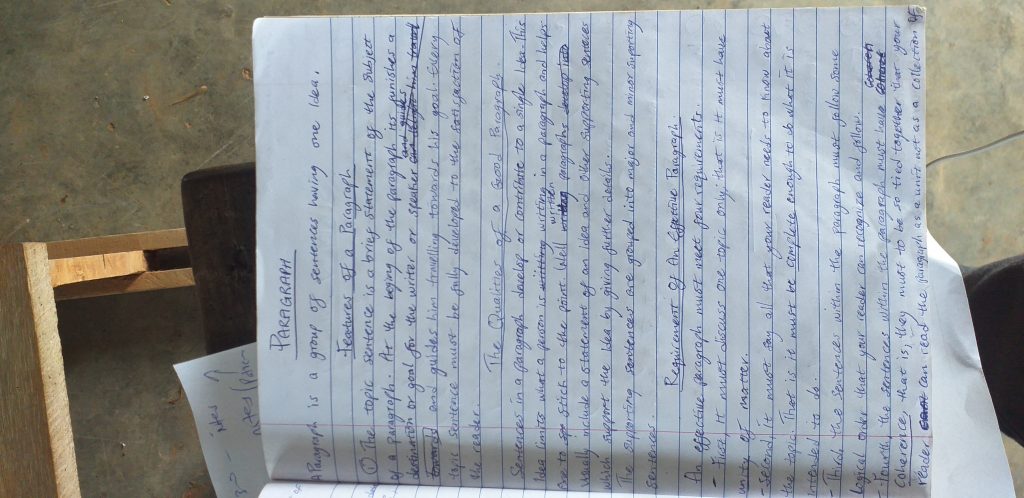 PARAGRAPH
A Paragraph is a group of sentences having one idea.
Features of a Paragraph
① The topic sentence is a brief statement of the subject
of a paragraph. At the begining of the paragraph its funishes a
destination or goal for the writer or speaker and guides
and guides him travelling towards his goal. Every
topic sentence must be fully developed to the satisfaction of
the reader.
The Qualities of a Good Paragraph
Sentences in a paragraph develop or contribute to a single idea. This
idea limits what a person is writting in a paragraph and helps
one to stick to the point. Well written paragraphs
usually include a statement of an idea and other supporting
which support the idea by giving further details.
The supporting sentences are grouped into major and minor supporting
sentences
Requirement of An Effective Paragraph.
An effective paragraph must meet four requirements.
- First It must discuss one topic only, that is it must have
unity of matter.
- Second, it must say all that your reader needs to know about
the topic. That is it must be complete enough to do what it is
intended to do.
- Third, the sentences within the paragraph must follow some
logical order that your reader can recognize and follow.
- Fourth, the sentences within the paragraph must have
Coherence, that is, they must to be so tied together that your
reader can read the paragraph as a unit not as a collection of